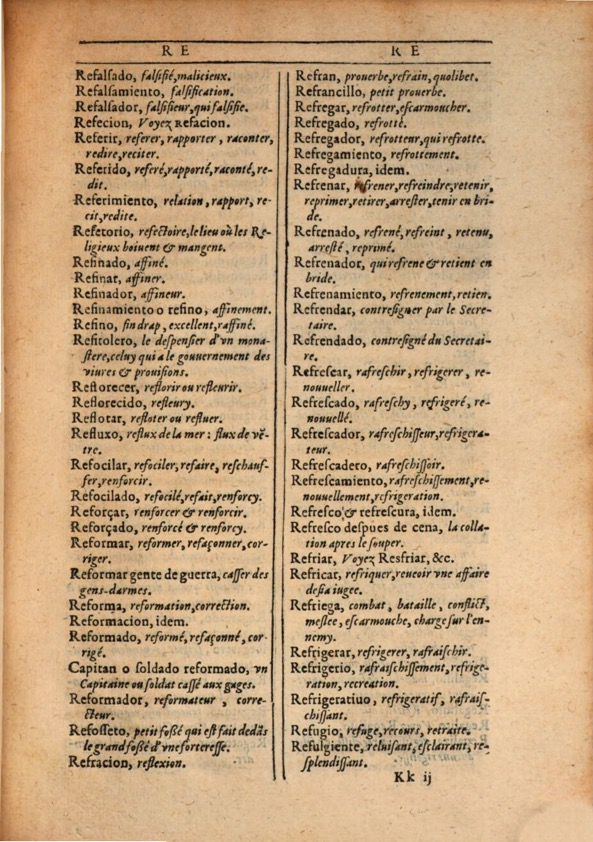 R E
R E
Refalſado, falſifié, malicieux.
Refalſamiento, falſification.
Refalſador, falſifieur, qui falſifie.
Refecion, Voyez Refacion.
Referir, referer, rapporter, raconter,
redire, reciter.
Referido, referé, rapporté, raconté, re-
dit.
Referimiento, relation, rapport, re-
cit, redite.
Refetorio, refectoire, le lieu où les Re-
ligieux boiuent & mangent.
Refinado, affiné.
Refinar, affiner.
Refinador, affineur.
Refinamiento o refino, affinement.
Refino, fin drap, excellent, raffiné.
Refitolero, le deſpenſier d'vn mona-
ſtere, celuy qui a le gouuernement des
viures & prouiſions.
Reflorecer, reflorir ou refleurir.
Reflorecido, refleury.
Reflotar, refloter ou refluer.
Refluxo, reflux de la mer: flux de vẽ-
tre.
Refocilar, refociler, refaire, reſchauf-
fer, renforcir.
Refocilado, refocilé, refait, renforcy.
Reforçar, renforcer & renforcir.
Reforçado, renforcé & renforcy.
Reformar, reformer, refaçonner, cor-
riger.
Reformar gente de guerra, caſſer des
gens-darmes.
Reforma, reformation, correction.
Reformacion, idem.
Reformado, reformé, refaçonné, cor-
rigé.
Capitan o ſoldado reformado, vn
Capitaine ou ſoldat caſſé aux gages.
Reformador, reformateur, corre-
cteur.
Refoſſeto, petit foßé qui eſt fait dedãs
le grand foßé d'vne fortereſſe.
Refracion, reflexion.
Refran, prouerbe, refrain, quolibet.
Refrancillo, petit prouerbe.
Refregar, refrotter, eſcarmoucher.
Refregado, refrotté.
Refregador, refrotteur, qui refrotte.
Refregamiento, refrottement.
Refregadura, idem.
Refrenar, refrener, refreindre, retenir,
reprimer, retirer, arreſter, tenir en bri-
de.
Refrenado, refrené, refreint, retenu,
arreſté, reprimé.
Refrenador, qui refrene & retient en
bride.
Refrenamiento, refrenement, retien.
Refrendar, contreſigner par le Secre-
taire.
Refrendado, contreſigné du Secretai-
re.
Refreſcar, rafreſchir, refrigerer, re-
nouueller.
Refreſcado, rafreſchy, refrigeré, re-
nouuellé.
Refreſcador, rafreſchiſſeur, refrigera-
teur.
Refreſcadero, rafreſchiſſoir.
Refreſcamiento, rafreſchiſſement, re-
nouuellement, refrigeration.
Refreſco & refreſcura, idem.
Refreſco deſpues de cena, la colla-
tion apres le ſouper.
Refriar, Voyez Resfriar, &c.
Refricar, refriquer, reuoir vne affaire
deſia iugee.
Refriega, combat, bataille, conflict,
meſlee, eſcarmouche, charge ſur l'en-
nemy.
Refrigerar, refrigerer, rafraiſchir.
Refrigerio, rafraiſchiſſement, refrige-
ration, recreation.
Refrigeratiuo, refrigeratif, rafraiſ-
chiſſant.
Refugio, refuge, recours, retraite.
Refulgiente, reluiſant, eſclairant, re-
ſplendiſſant.
Kk ij